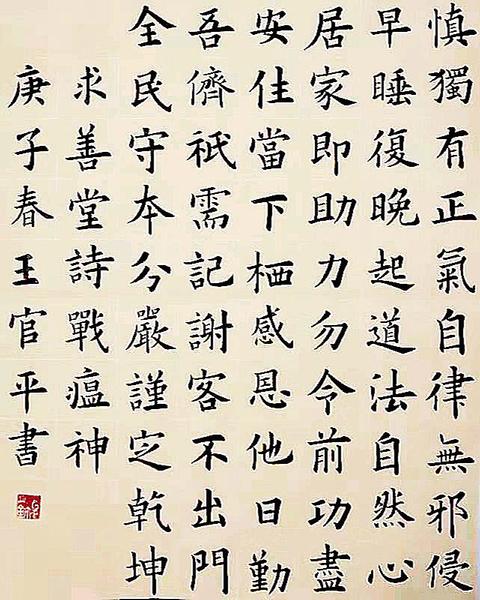 慎獨有正氣自律無邪侵
早睡復晚起道法自然心
居家即助力勿令前功盡
安住當下栖感恩他日勤
吾儕祇需記謝客不出門
全民守本分嚴謹定乾坤
求善堂詩戰瘟神
庚子春王官平書